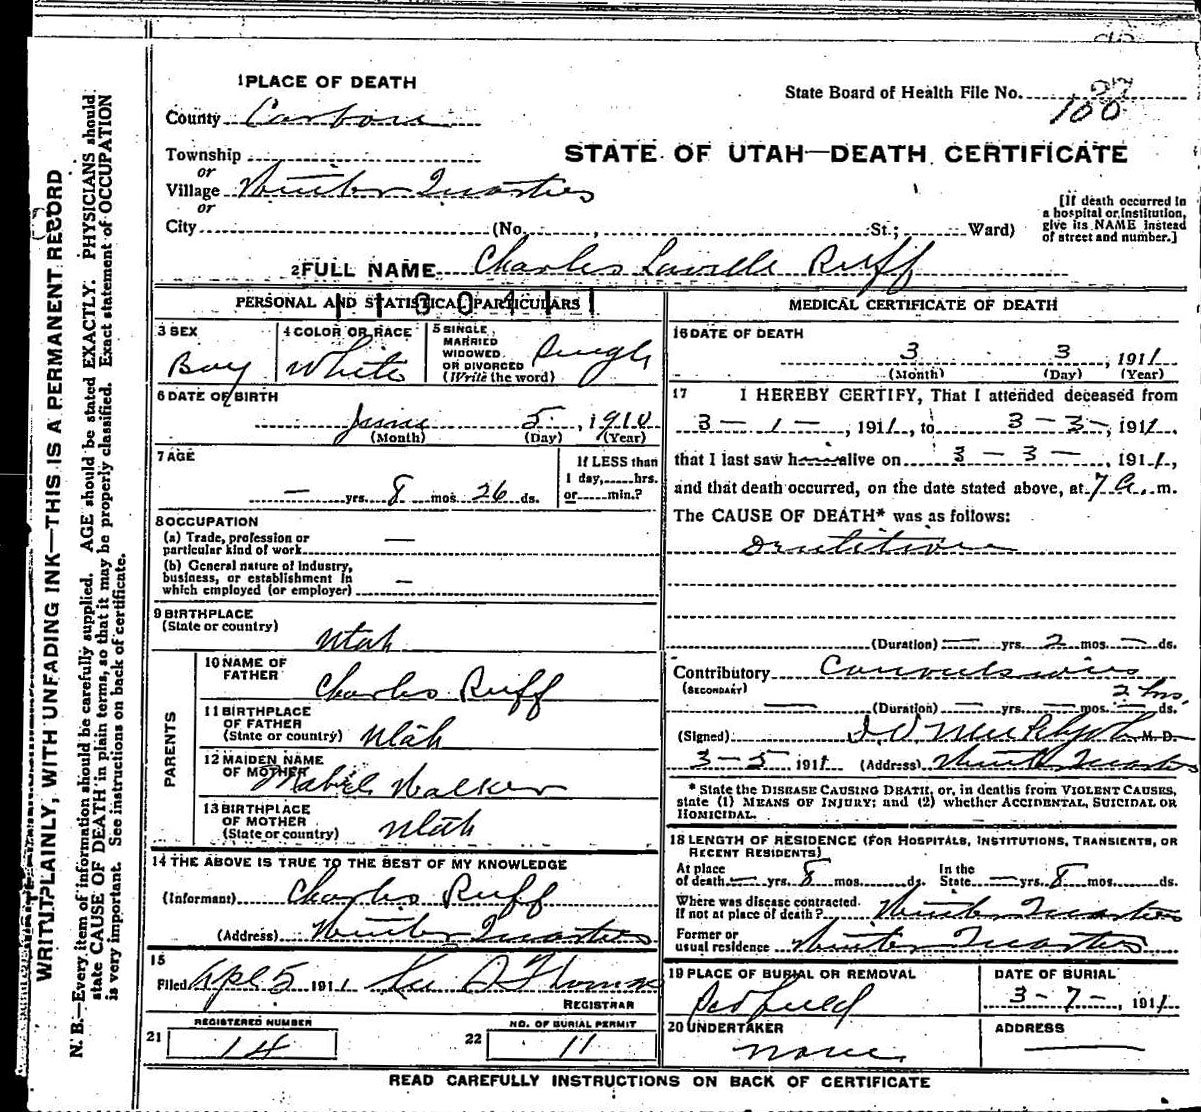 1 PLACE OF DEATH
State Board of Health File No. 100
County Carbon
STATE OF UTAH—DEATH CERTIFICATE
Township
or
Village Winter Quarters
or
City (No. , St.; Ward)
[If death occurred in a hospital or institution, give its NAME instead of street and number.]
2 FULL NAME Charles Lavelle Ruff
PERSONAL AND STATISTICAL PARTICULARS
3 SEX
Boy
4 COLOR OR RACE
White
5 SINGLE, MARRIED WIDOWED OR DIVORCED (Write the word)
Single
6 DATE OF BIRTH
June 5, 1910
(Month) (Day) (Year)
7 AGE
— yrs. 8 mos. 26 ds.
If LESS than 1 day, hrs. or min.?
8 OCCUPATION
(a) Trade, profession or particular kind of work —
(b) General nature of industry, business, or establishment in which employed (or employer) —
9 BIRTHPLACE
(State or country) Utah
PARENTS
10 NAME OF FATHER Charles Ruff
11 BIRTHPLACE OF FATHER (State or country) Utah
12 MAIDEN NAME OF MOTHER Mabel Walker
13 BIRTHPLACE OF MOTHER (State or country) Utah
14 THE ABOVE IS TRUE TO THE BEST OF MY KNOWLEDGE
(Informant) Charles Ruff
(Address) Winter Quarters
15
Filed Apl 5 1911
REGISTRAR
21 REGISTERED NUMBER 14
22 NO. OF BURIAL PERMIT 11
MEDICAL CERTIFICATE OF DEATH
16 DATE OF DEATH
3 3, 1911
(Month) (Day) (Year)
17 I HEREBY CERTIFY, That I attended deceased from
3 – 1 –, 1911, to 3 – 3 –, 1911,
that I last saw h alive on 3 – 3 –, 1911,
and that death occurred, on the date stated above, at 7 a. m.
The CAUSE OF DEATH* was as follows:
Dentition
(Duration) — yrs. 2 mos. — ds.
Contributory Convulsions
(SECONDARY)
2 hrs
— (Duration) — yrs. — mos. — ds.
(Signed) M. D.
3 – 5 1911 (Address) Winter Quarters
* State the DISEASE CAUSING DEATH, or, in deaths from VIOLENT CAUSES, state (1) MEANS OF INJURY; and (2) whether ACCIDENTAL, SUICIDAL OR HOMICIDAL.
18 LENGTH OF RESIDENCE (FOR HOSPITALS, INSTITUTIONS, TRANSIENTS, OR RECENT RESIDENTS)
At place of death — yrs. 8 mos. ds. In the State — yrs. 8 mos. ds.
Where was disease contracted, If not at place of death? Winter Quarters
Former or usual residence Winter Quarters
19 PLACE OF BURIAL OR REMOVAL
DATE OF BURIAL
3 – 7 –, 1911
20 UNDERTAKER
None
ADDRESS
—
READ CAREFULLY INSTRUCTIONS ON BACK OF CERTIFICATE
WRITE PLAINLY, WITH UNFADING INK—THIS IS A PERMANENT RECORD
N. B.—Every item of information should be carefully supplied. AGE should be stated EXACTLY. PHYSICIANS should
state CAUSE OF DEATH in plain terms, so that it may be properly classified. Exact statement of OCCUPATION
is very important. See instructions on back of certificate.